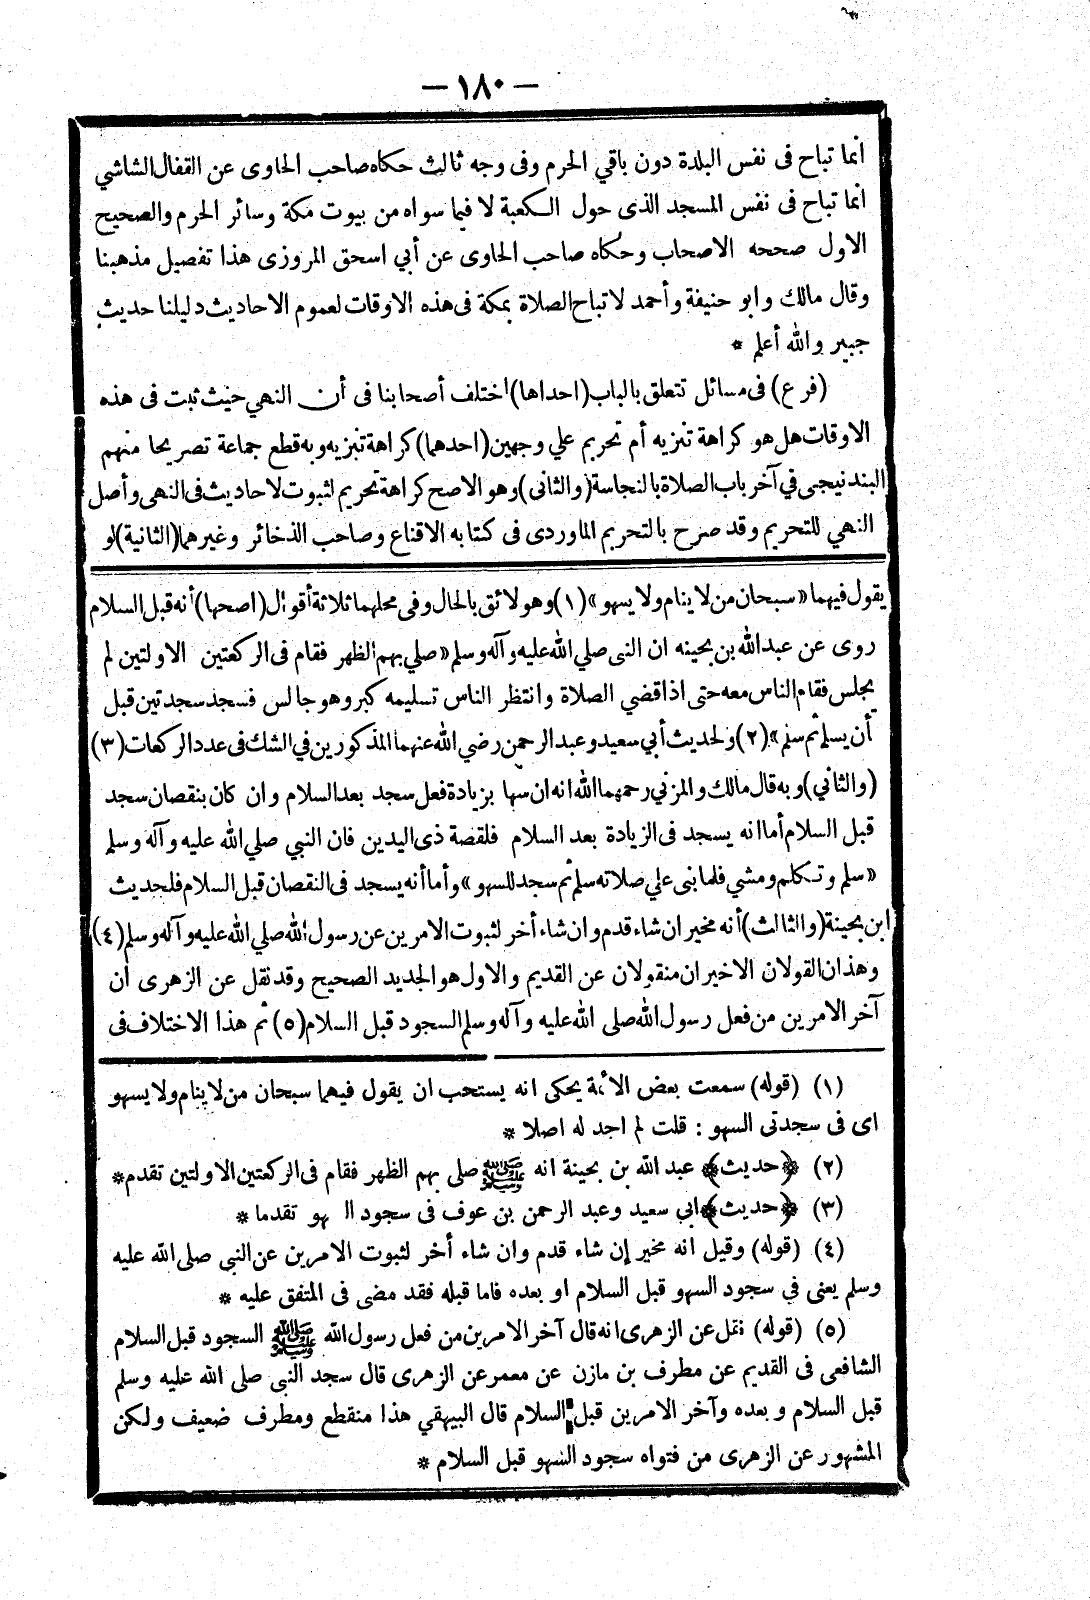 — ١٨٠ —
انما تباح فى نفس البلدة دون باقي الحرم وفى وجه ثالث حكاه صاحب الحاوى عن القفال الشاشي
انما تباح فى نفس المسجد الذى حول الكعبة لا فيما سواه من بيوت مكة وسائر الحرم والصحيح
الاول صححه الاصحاب وحكاه صاحب الحاوى عن أبي اسحق المروزى هذا تفصيل مذهبنا
وقال مالك وابو حنيفة وأحمد لا تباح الصلاة بمكة فى هذه الاوقات لعموم الاحاديث دليلنا حديث
جبير والله أعلم *
(فرع) فى مسائل تتعلق بالباب (احداها) اختلف أصحابنا فى أن النهي حيث ثبت فى هذه
الاوقات هل هو كراهة تنزيه أم تحريم علي وجهين (احدهما) كراهة تنزيه وبه قطع جماعة تصريحا منهم
البندنيجى في آخر باب الصلاة بالنجاسة (والثانى) وهو الاصح كراهة تحريم لثبوت لاحاديث فى النهى وأصل
النهي للتحريم وقد صرح بالتحريم الماوردى فى كتابه الاقناع وصاحب الذخائر وغيرهما (الثانية) لو
يقول فيهما «سبحان من لا ينام ولا يسهو» (١) وهو لائق بالحال وفى محلهما ثلاثة أقوال (اصحها) أنه قبل السلام
روى عن عبد الله بن بحينه ان النبى صلي الله عليه وآله وسلم «صلي بهم الظهر فقام فى الركعتين الاولتين لم
يجلس فقام الناس معه حتى اذا قضي الصلاة وانتظر الناس تسليمه كبر وهو جالس فسجد سجدتين قبل
أن يسلم ثم سلم» (٢) ولحديث أبي سعيد وعبد الرحمن رضي الله عنهما المذكورين في الشك فى عدد الركعات (٣)
(والثاني) وبه قال مالك والمزني رحمهما الله انه ان سها بزيادة فعل سجد بعد السلام وان كان بنقصان سجد
قبل السلام أما انه يسجد فى الزيادة بعد السلام فلقصة ذى اليدين فان النبي صلي الله عليه وآله وسلم
«سلم وتكلم ومشي فلما بنى علي صلاته سلم ثم سجد للسهو» وأما أنه يسجد فى النقصان قبل السلام فلحديث
ابن بحينة (والثالث) أنه مخير ان شاء قدم وان شاء أخر لثبوت الامرين عن رسول الله صلي الله عليه وآله وسلم (٤)
وهذان القولان الاخيران منقولان عن القديم والاول هو الجديد الصحيح وقد نقل عن الزهرى ان
آخر الامرين من فعل رسول الله صلى الله عليه وآله وسلم السجود قبل السلام (٥) ثم هذا الاختلاف فى
(١) (قوله) سمعت بعض الأئمة يحكى انه يستحب ان يقول فيهما سبحان من لا ينام ولا يسهو
اى فى سجدتى السهو : قلت لم اجد له اصلا *
(٢) ﴿حديث﴾ عبد الله بن بحينة انه ﷺ صلى بهم الظهر فقام فى الركعتين الاولتين تقدم *
(٣) ﴿حديث﴾ ابي سعيد وعبد الرحمن بن عوف فى سجود السهو تقدما *
(٤) (قوله) وقيل انه مخير إن شاء قدم وان شاء أخر لثبوت الامرين عن النبى صلى الله عليه
وسلم يعنى في سجود السهو قبل السلام او بعده فاما قبله فقد مضى فى المتفق عليه *
(٥) (قوله) نقل عن الزهرى انه قال آخر الامرين من فعل رسول الله ﷺ السجود قبل السلام
الشافعى فى القديم عن مطرف بن مازن عن معمر عن الزهرى قال سجد النبى صلى الله عليه وسلم
قبل السلام وبعده وآخر الامرين قبل السلام قال البيهقي هذا منقطع ومطرف ضعيف ولكن
المشهور عن الزهرى من فتواه سجود السهو قبل السلام *